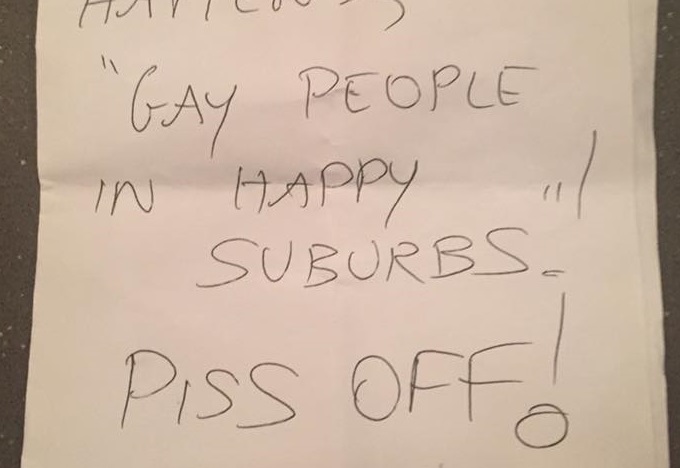 "GAY PEOPLE
IN HAPPY "!
SUBURBS.
PISS OFF!